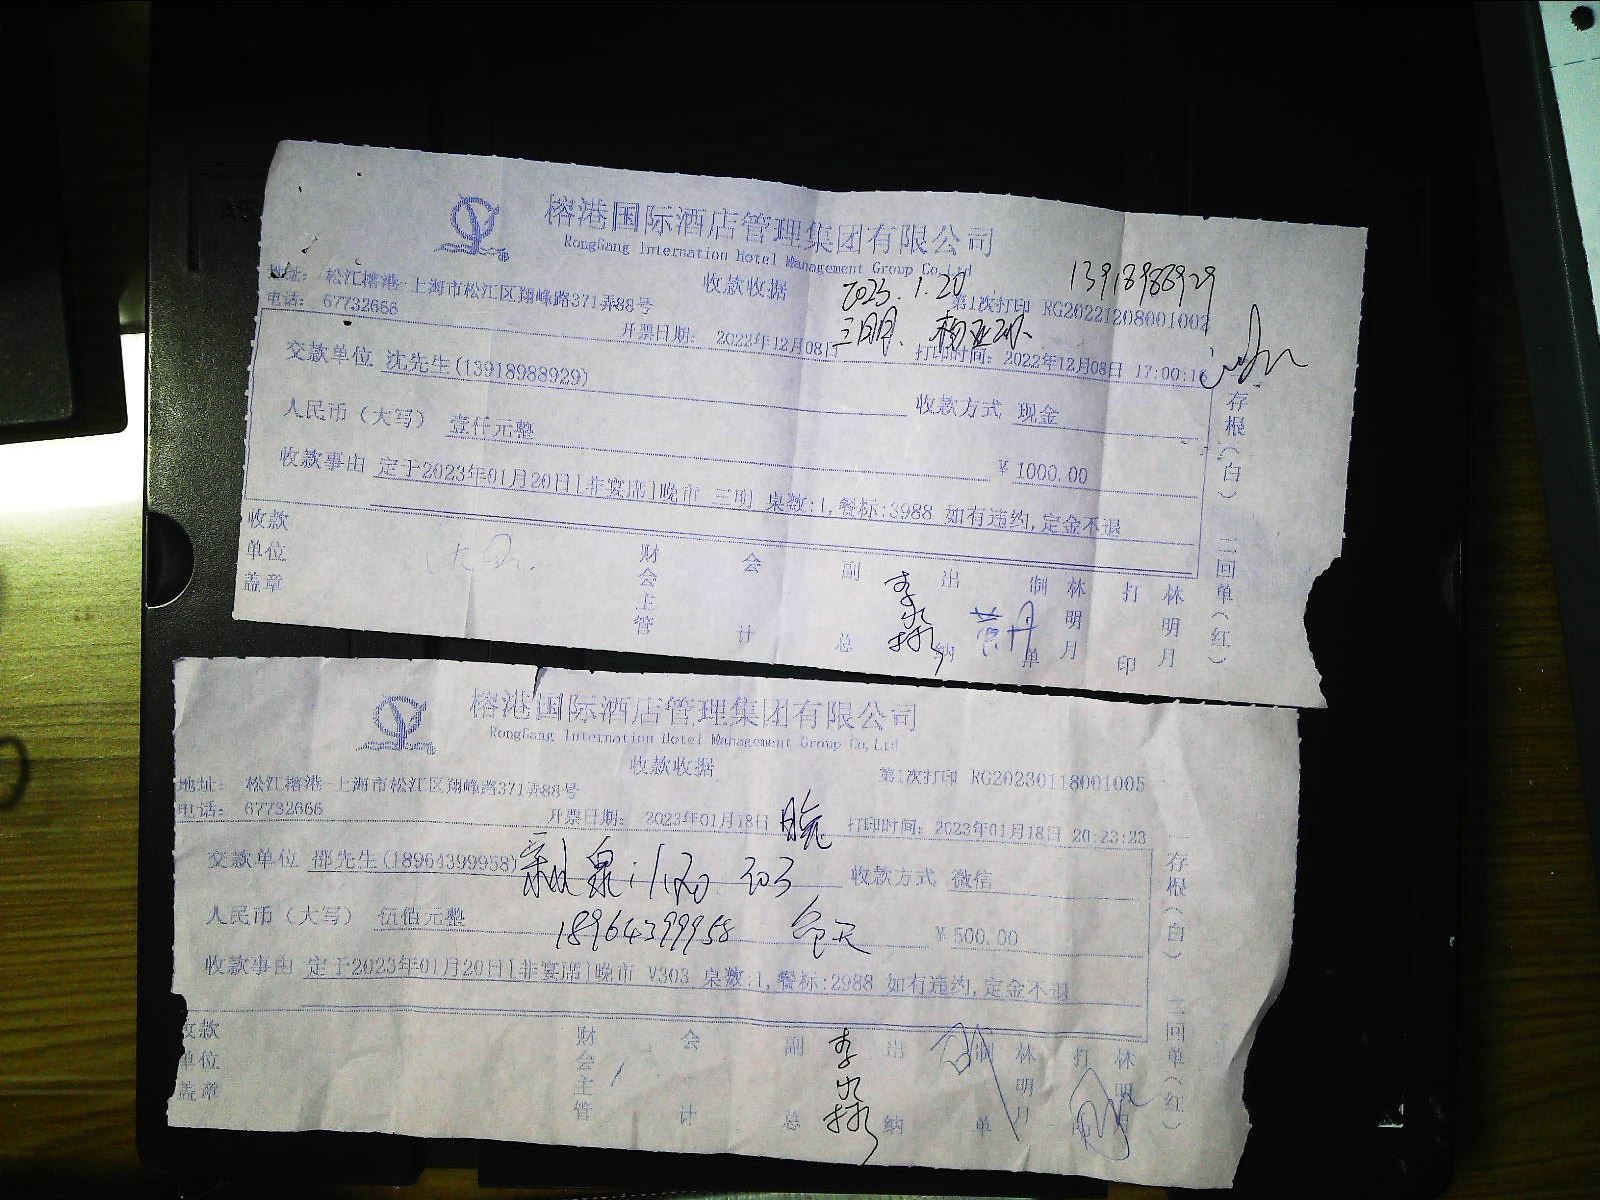 榕港国际酒店管理集团有限公司
RongGang International Hotel Management Group Co,Ltd
收款收据
2023.1.20
13918988929
地址: 松江榕港-上海市松江区翔峰路371弄88号
第1次打印 RG20221208001002
电话: 67732666
三明
开票日期: 2022年12月08日
打印时间: 2022年12月08日 17:00:16
交款单位 沈先生(13918988929)
收款方式 现金
人民币（大写） 壹仟元整
￥1000.00
收款事由 定于2023年01月20日[非宴席]晚市 三明 桌数:1,餐标:3988 如有违约,定金不退
一存根（白） 二回单（红）
收款单位盖章 财会主管 会计 副总 出纳 黄丹 制单 林明月 打印 林明月
榕港国际酒店管理集团有限公司
RongGang International Hotel Management Group Co,Ltd
收款收据
第1次打印 RG20230118001005
地址: 松江榕港-上海市松江区翔峰路371弄88号
电话: 67732666
开票日期: 2023年01月18日
晚
打印时间: 2023年01月18日 20:23:23
交款单位 邵先生(18964399958)
1.20 303
收款方式 微信
人民币（大写） 伍佰元整
18964399958
￥500.00
收款事由 定于2023年01月20日[非宴席]晚市 V303 桌数:1,餐标:2988 如有违约,定金不退
一存根（白） 二回单（红）
收款单位盖章 财会主管 会计 副总 出纳 制单 林明月 打印 林明月